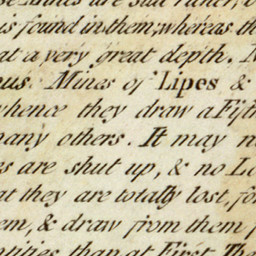 Mines are still richer,
is found in them; whereas the
at a very great depth.
nus. Mines of Lipes &
whence they draw a Fifth
many others. It may n
es are shut up, & no Lo
at they are totally lost, for
em, & draw from them
ntities than at First. The